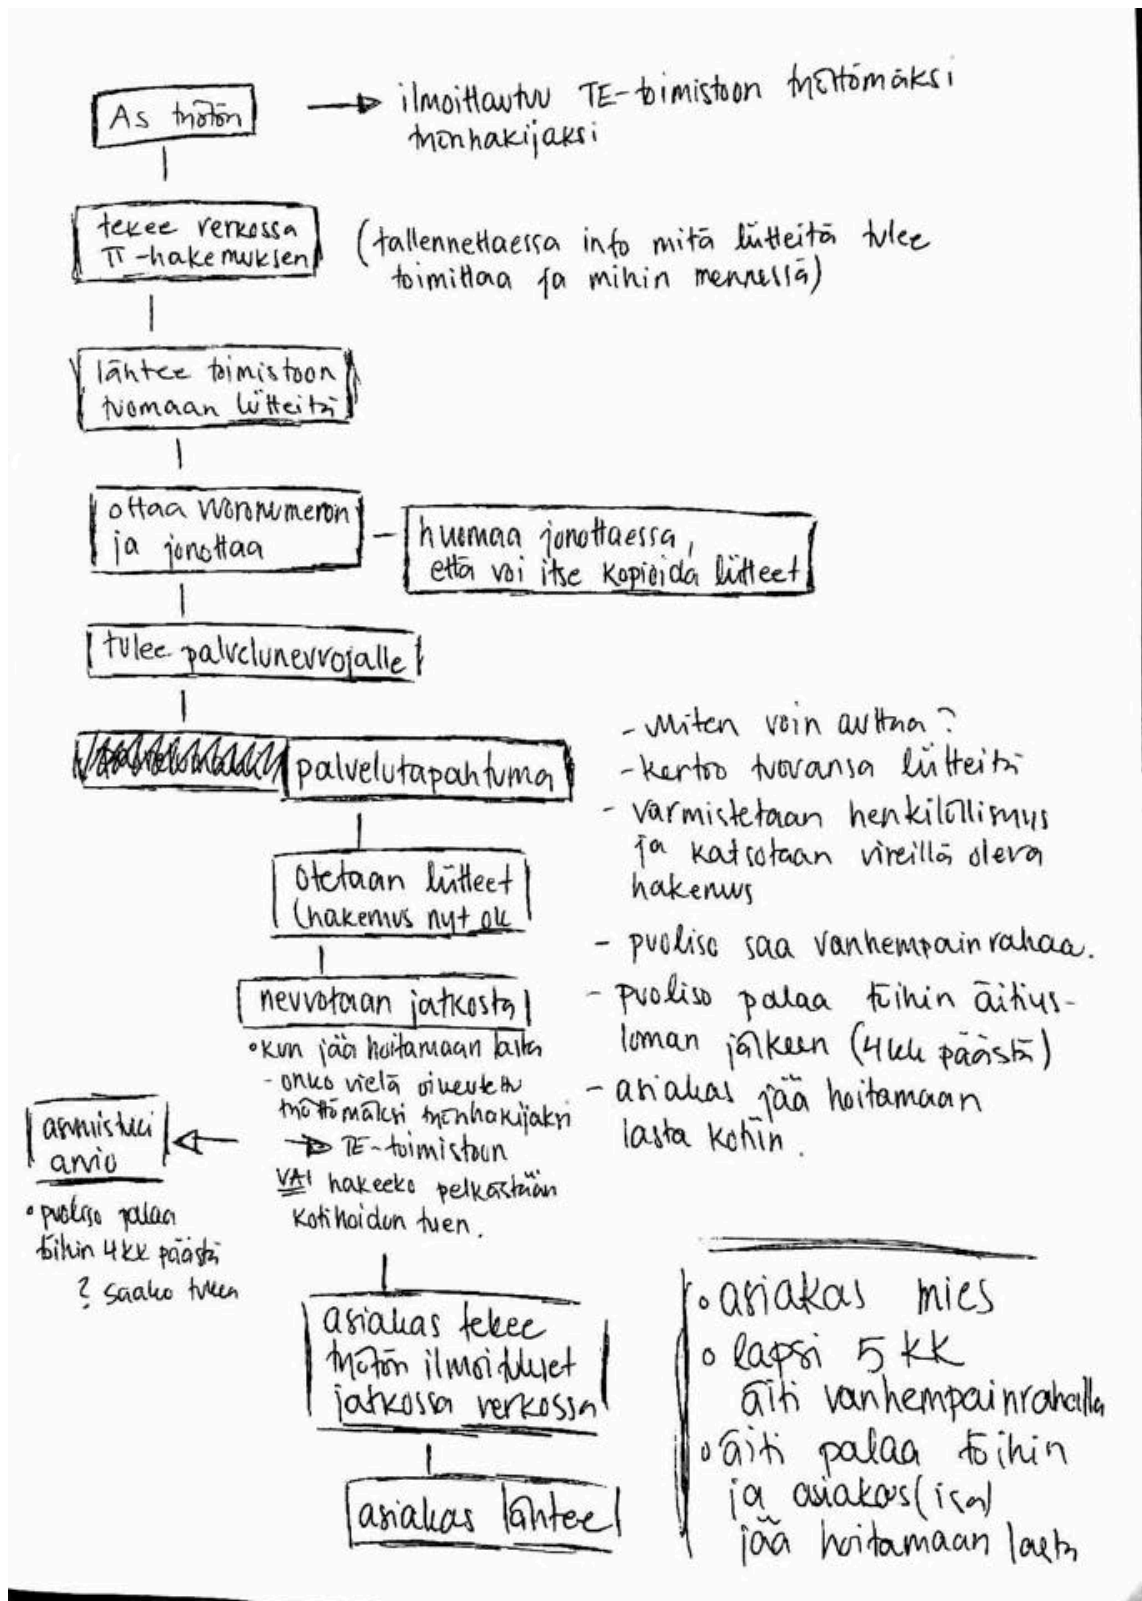 As työtön
→ ilmoittautuu TE-toimistoon työttömäksi
työnhakijaksi
tekee verkossa
TT-hakemuksen
(tallennettaessa info mitä liitteitä tulee
toimittaa ja mihin mennessä)
lähtee toimistoon
tuomaan liitteitä
ottaa vuoronumeron
ja jonottaa
huomaa jonottaessa,
että voi itse kopioida liitteet
tulee palveluneuvojalle
palvelutapahtuma
- Miten voin auttaa?
- kertoo tuovansa liitteitä
- varmistetaan henkilöllisyys
ja katsotaan vireillä oleva
hakemus
- puoliso saa vanhempainrahaa.
- puoliso palaa töihin äitiys-
loman jälkeen (4kk päästä)
- asiakas jää hoitamaan
lasta kotiin.
otetaan liitteet
(hakemus nyt ok
neuvotaan jatkosta
• kun jää hoitamaan lasta
- onko vielä oikeutettu
työttömäksi työnhakijaksi
→ TE-toimistoon
VAI hakeeko pelkästään
kotihoidon tuen.
asumistuki
arvio
• puoliso palaa
töihin 4kk päästä
? saako tukea
asiakas tekee
työtön ilmoitukset
jatkossa verkossa
asiakas lähtee
• asiakas mies
• lapsi 5 kk
äiti vanhempainrahalla
• äiti palaa töihin
ja asiakas (isä)
jää hoitamaan lasta